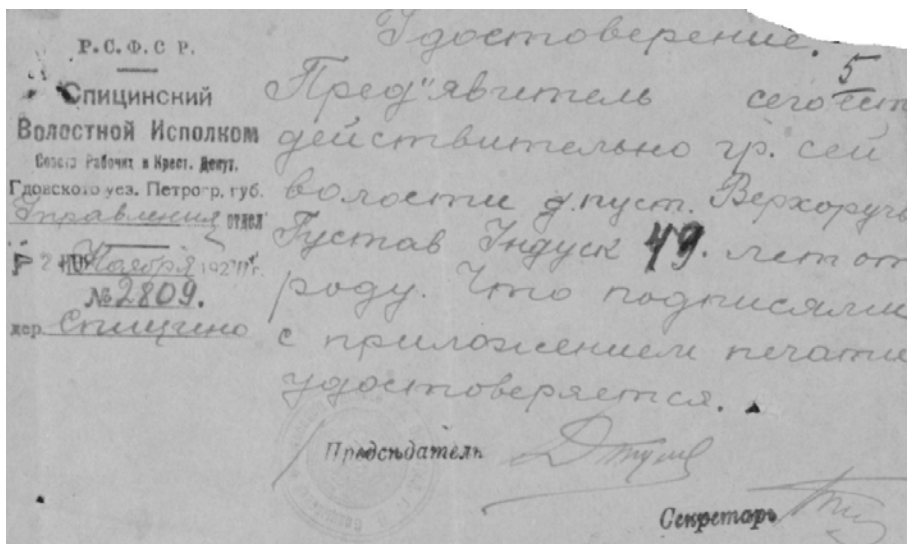 Р.С.Ф.С.Р.
Спицинский
Волостной Исполком
Совета Рабочих и Крест. Депут.
Гдовского уез. Петрогр. губ.
Управления отдел
2 Ноября 192 г.
№ 2809.
дер. Спицино
Удостоверение.
Пред"явитель сего есть
5
действительно гр. сей
волости д. пуст. Верхоручь
Густав Индуск 49. лет от
роду. Что подписями
с приложением печати
удостоверяется.
Председатель
Секретарь